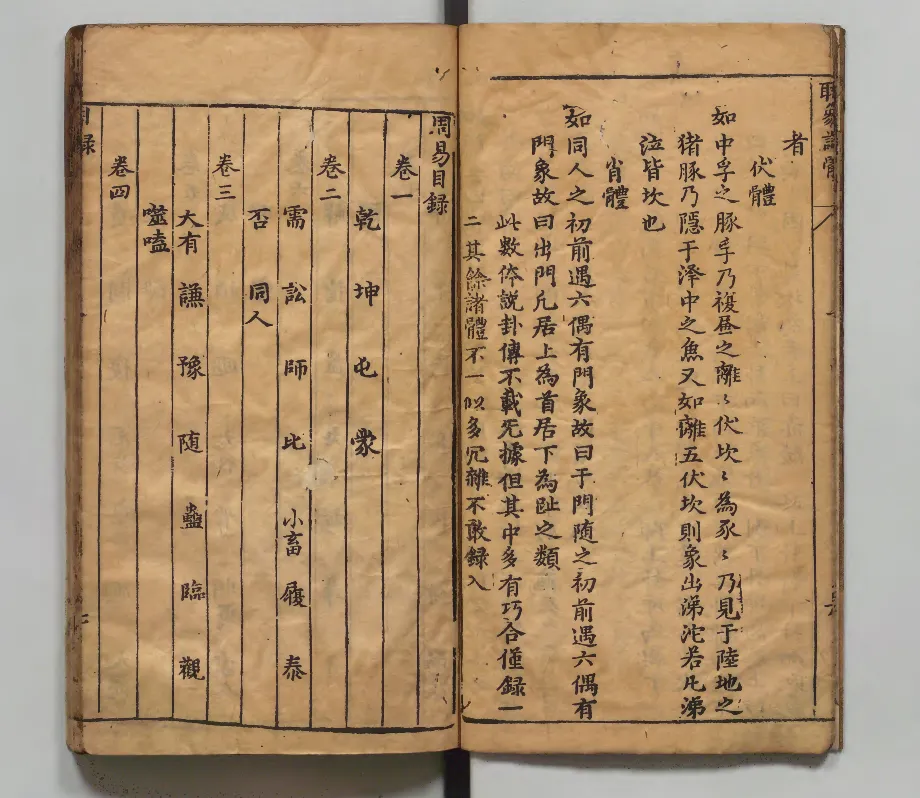 者
伏體
如中孚之豚孚乃複昼之離〻伏坎〻為豕〻乃見于陸地之
猪豚乃隱于泽中之魚又如離五伏坎則象出涕沱若凡涕
泣皆坎也
肖體
如同人之初前遇六偶有門象故曰于門随之初前遇六偶有
門象故曰出門凡居上為首居下為趾之類
此數体説卦傳不載无據但其中多有巧合僅録一
二其餘諸體不一似多冗雜不敢録入
周易目録
卷一
乾 坤 屯 蒙
卷二
需 訟 師 比 小畜 履 泰
否 同人
卷三
大有 謙 豫 随 蠱 臨 觀
噬嗑
卷四
目録